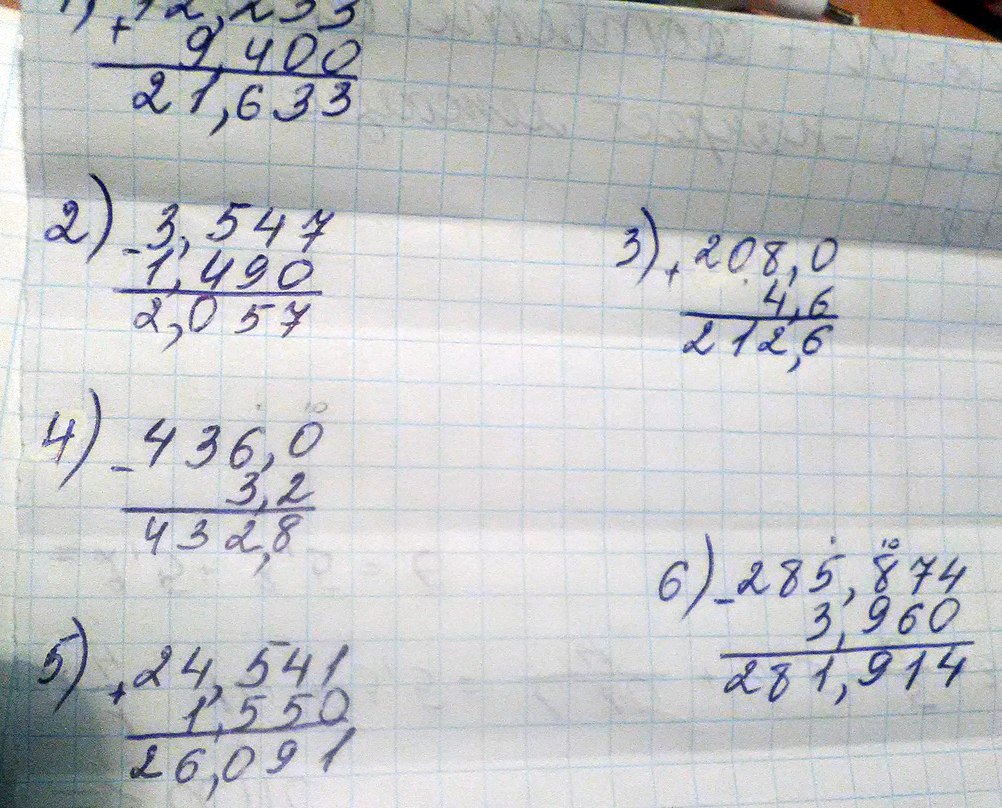 1) 12,233
+ 9,400
21,633
2) - 3,547
1,490
2,057
3) + 208,0
4,6
212,6
4) - 436,0
3,2
432,8
5) + 24,541
1,550
26,091
6) - 285,874
3,960
281,914